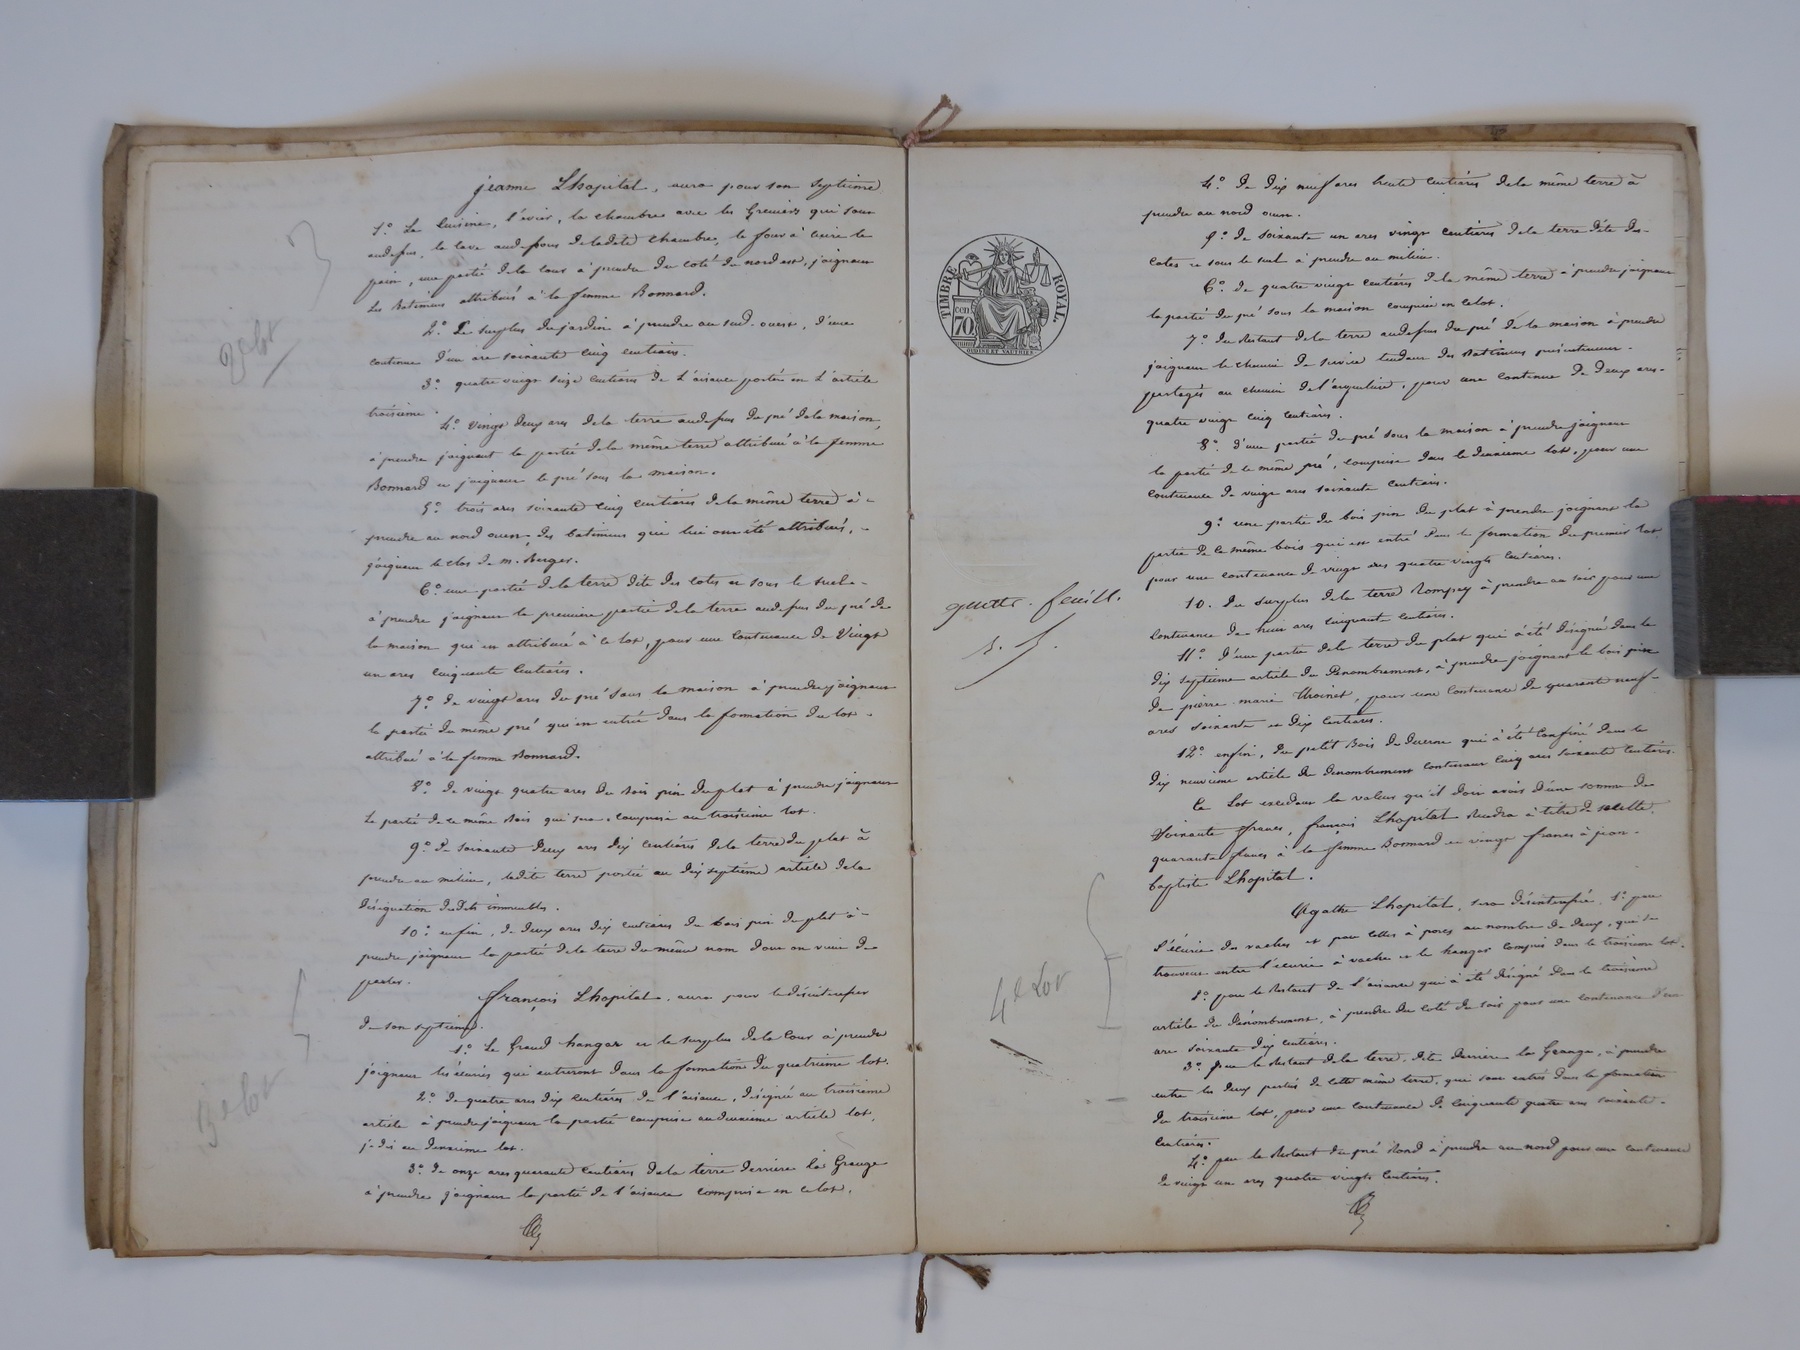 jeanne Lhopital, aura pour son Septieme
1.° La Cuisine, l'évier, la chambre avec les Greniers qui sont
audessus, la cave audessous deladite chambre, le four à cuire le
pain, une partie dela cour à prendre du coté du nord est, joignant
les Batimens attribués à la femme Bonnard.
2.° Le surplus du jardin à prendre au sud-ouest, d'une
contenue d'un are soixante cinq centiares.
3.° quatre vingt seize centiares de L'aisance portée en L'article
troisieme.
4.° vingt deux ares dela terre audessus du pré dela maison,
à prendre joignant la partie dela même terre attribuée à la femme
Bonnard et joignant le pré sous la maison.
5.° trois ares soixante cinq centiares dela même terre à
prendre au nord ouest, des batimens qui lui ont été attribués,
joignant le clos de m. Berger.
6.° une partie dela terre dite des cotes et sous le
à prendre joignant la premiere partie dela terre audessus du pré de
la maison qui est attribuée à ce lot, pour une Contenance de Vingt
un ares cinquante Centiares.
7.° de vingt ares du pré sous la maison à prendre joignant
la partie du même pré qui est entrée dans la formation du lot
attribué à la femme Bonnard.
8.° de vingt quatre ares du Bois pin du plat à prendre joignant
la partie de ce même Bois qui sera comprise au troisieme lot.
9.° de soixante deux ares dix centiares dela terre du plat à
prendre au milieu, ladite terre portée au dix septieme article dela
désignation desdits immeubles.
10.° enfin, de deux ares dix centiares du bois pin du plat à
prendre joignant la partie dela terre du même nom dont on vient de
parler.
françois Lhopital, aura pour le désintéresser
de son septieme.
1.° Le Grand hangar et le surplus dela Cour à prendre
joignant les écuries qui entreront dans la formation du quatrieme lot.
2.° de quatre ares dix centiares de l'aisance, désignée au troisieme
article à prendre joignant la partie comprise au deuxieme article lot,
je dis au deuxieme lot.
3.° de onze ares quarante centiares dela terre derriere la Grange
à prendre joignant la partie de l'aisance comprise en ce lot.
2e lot
3e lot
TIMBRE ROYAL.
70
quatr. feuill.
4e Lot
4.° de dix neuf ares trente centiares dela même terre à
prendre au nord ouest.
5.° de soixante un ares vingt centiares dela terre dite des
cotes et sous le à prendre au milieu.
6.° de quatre vingt centiares dela même terre à prendre joignant
la partie du pré sous la maison comprise en ce lot.
7.° du Restant dela terre audessus du pré de la maison à prendre
joignant le chemin de service tendant des Batimens
partagés au chemin de pour une contenue de deux ares
quatre vingt cinq centiares.
8.° d'une partie du pré sous la maison à prendre joignant
la partie de ce même pré, comprise dans le deuxieme lot, pour une
contenance de vingt ares soixante centiares.
9.° une partie du bois pin du plat à prendre joignant la
partie de ce même bois qui est entré dans la formation du premier lot
pour une contenance de vingt ares quatre vingts Centiares.
10. du surplus dela terre Rompey à prendre au soir pour une
contenance de huit ares cinquante centiares.
11.° d'une partie dela terre du plat qui a été désignée dans le
dix septieme article du Dénombrement, à prendre joignant le bois pin
de pierre marie Thoinet, pour une Contenance de quarante neuf
ares soixante et dix Centiares.
12.° enfin, du petit Bois du qui a été confiné dans le
dix neuvieme article du denombrement contenant cinq ares soixante centiares.
Ce Lot excedant la valeur qu'il doit avoir d'une somme de
Soixante francs, françois Lhopital Rendra à titre de soulte,
quarante francs à la femme Bonnard et vingt francs à jean
baptiste Lhopital.
Agathe Lhopital, sera désintéressée, 1.° par
L'écurie des vaches et par celles à porcs au nombre de deux, qui se
trouvent entre l'écurie à vaches et le hangar compris dans le troisieme lot.
2.° par le Restant de l'aisance qui a été désigné dans le troisieme
article du Dénombrement, à prendre du coté de soir pour une contenance d'un
are soixante dix centiares.
3.° par le Restant dela terre, dite derriere la Grange, à prendre
entre les deux parties de cette même terre, qui sont entrées dans la formation
du troisieme lot, pour une contenance de cinquante quatre ares soixante
Centiares.
4.° par le Restant du pré Rond à prendre au nord pour une contenance
de vingt un ares quatre vingts Centiares.